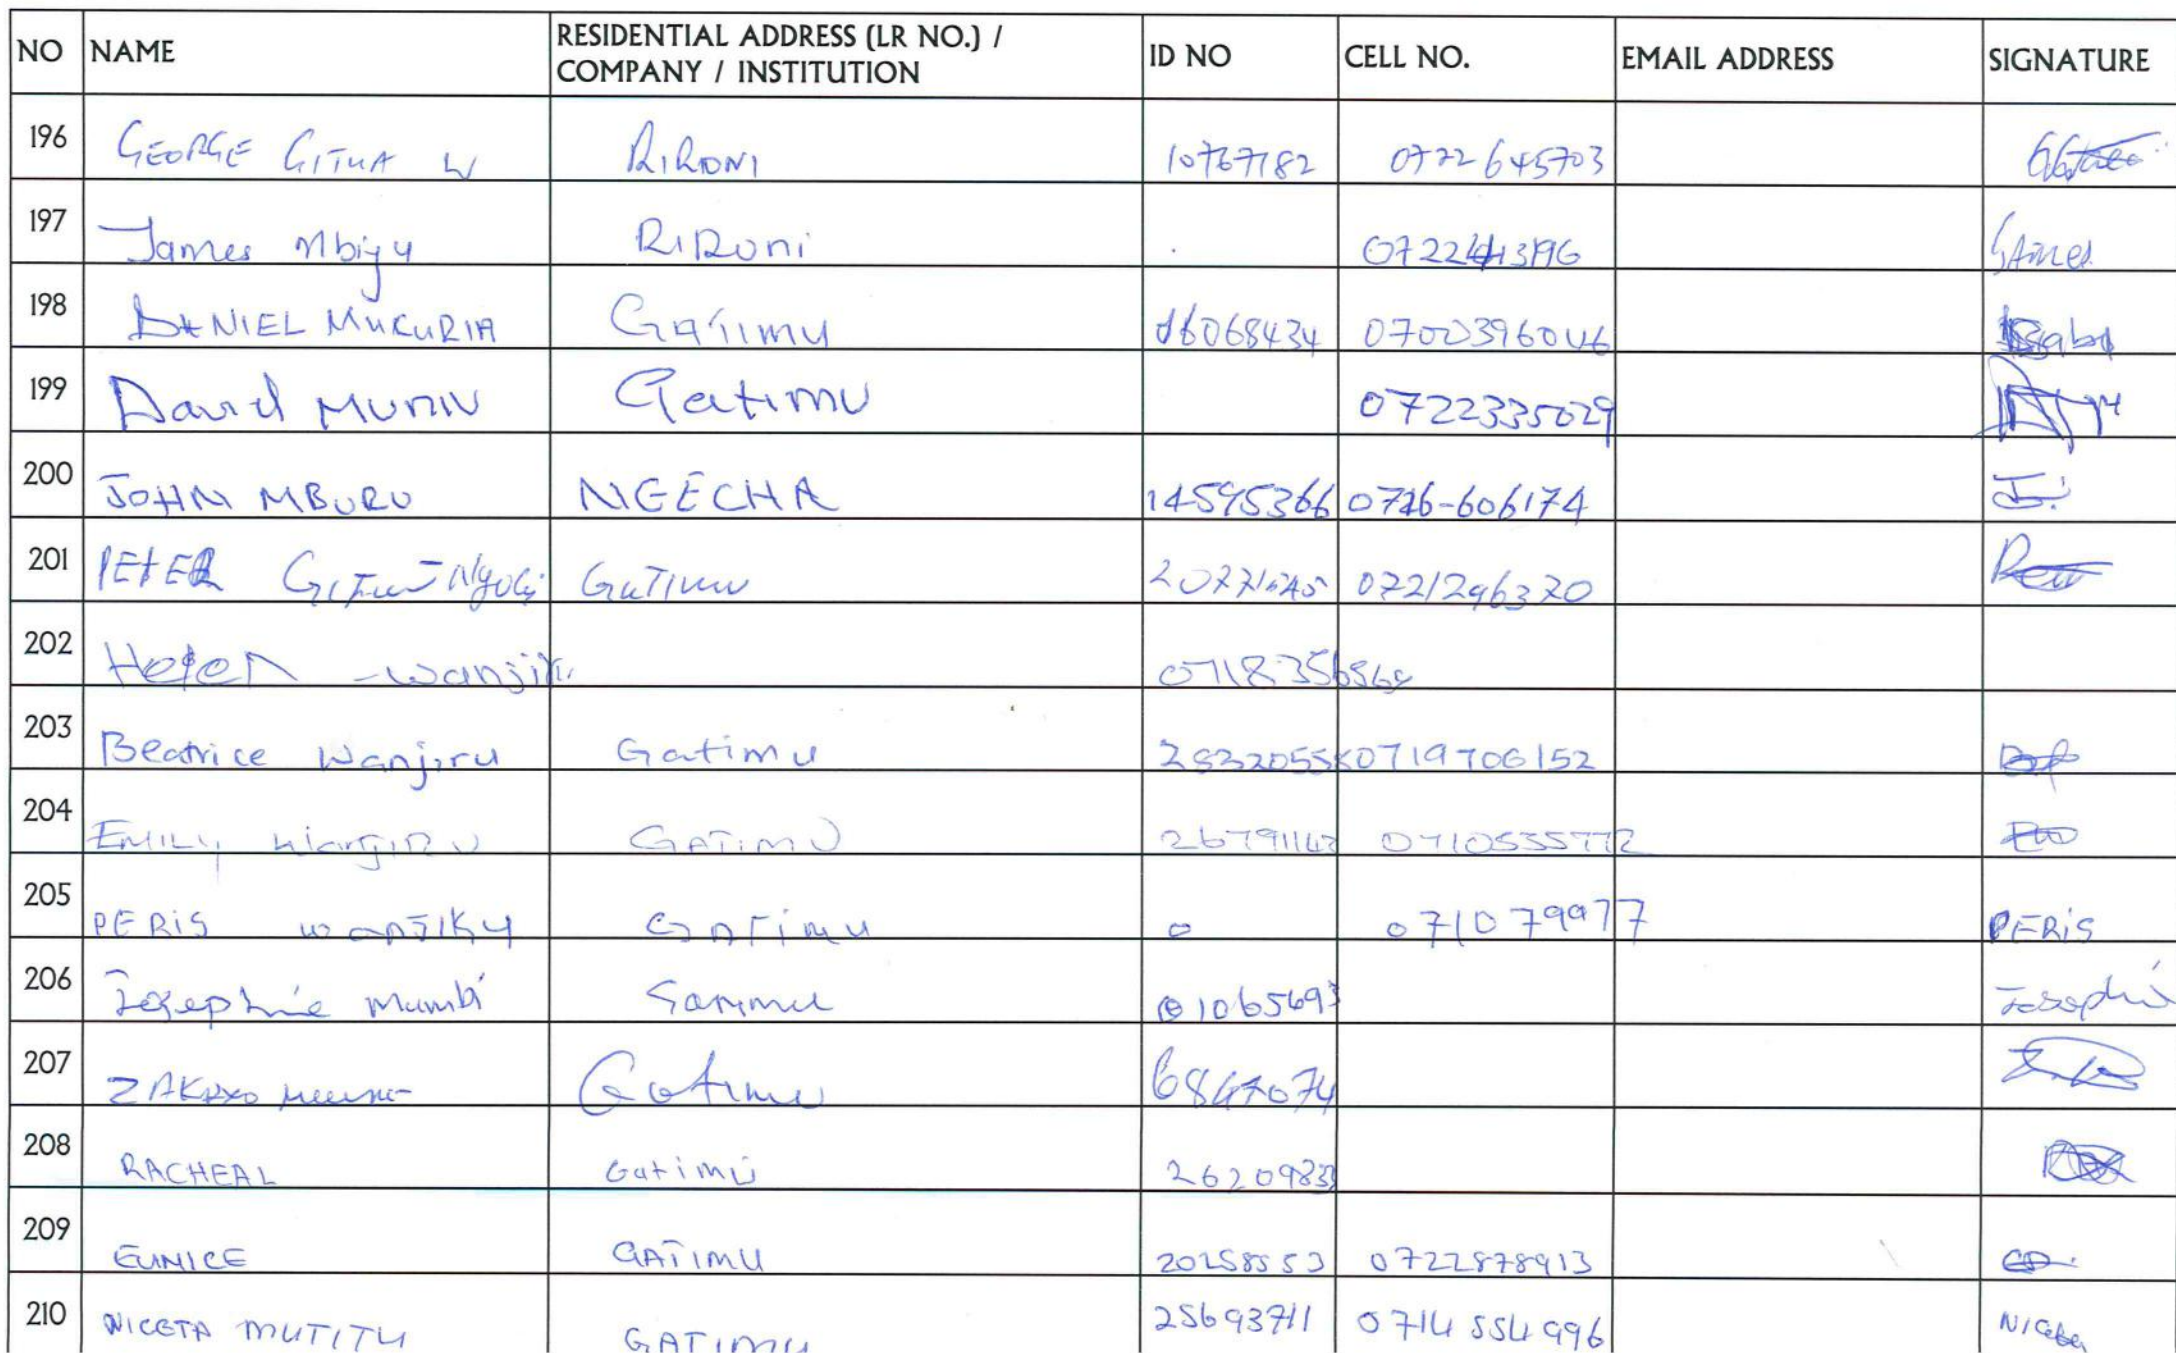 NO NAME RESIDENTIAL ADDRESS (LR NO.) / COMPANY / INSTITUTION ID NO CELL NO. EMAIL ADDRESS SIGNATURE
196 GEORGE GITHA W RIRONI 10767182 0722645703
197 James Mbiyu RIRoni James
198 DANIEL MUKURIA Gatimu 0700396046
199 David Gatimu 0722335029
200 JOHN MBURU NGECHA 14595366 0726-606174 J.
201 PETER Gatimu 0721296370
202 Helen Wanjiku
203 Beatrice Wanjiru Gatimu 0719706152
204 EMILY WANJIRU GATIMU 0710535772
205 PERIS WANJIKU GATIMU 0 071079977 PERIS
206 Josephine Mumbi Gatimu Josephi
207 Gatimu 6847074
208 RACHEAL Gatimu
209 EUNICE GATIMU 0722878913
210 NICETA MUTITU GATIMU 25693711 0714554996 Niceta